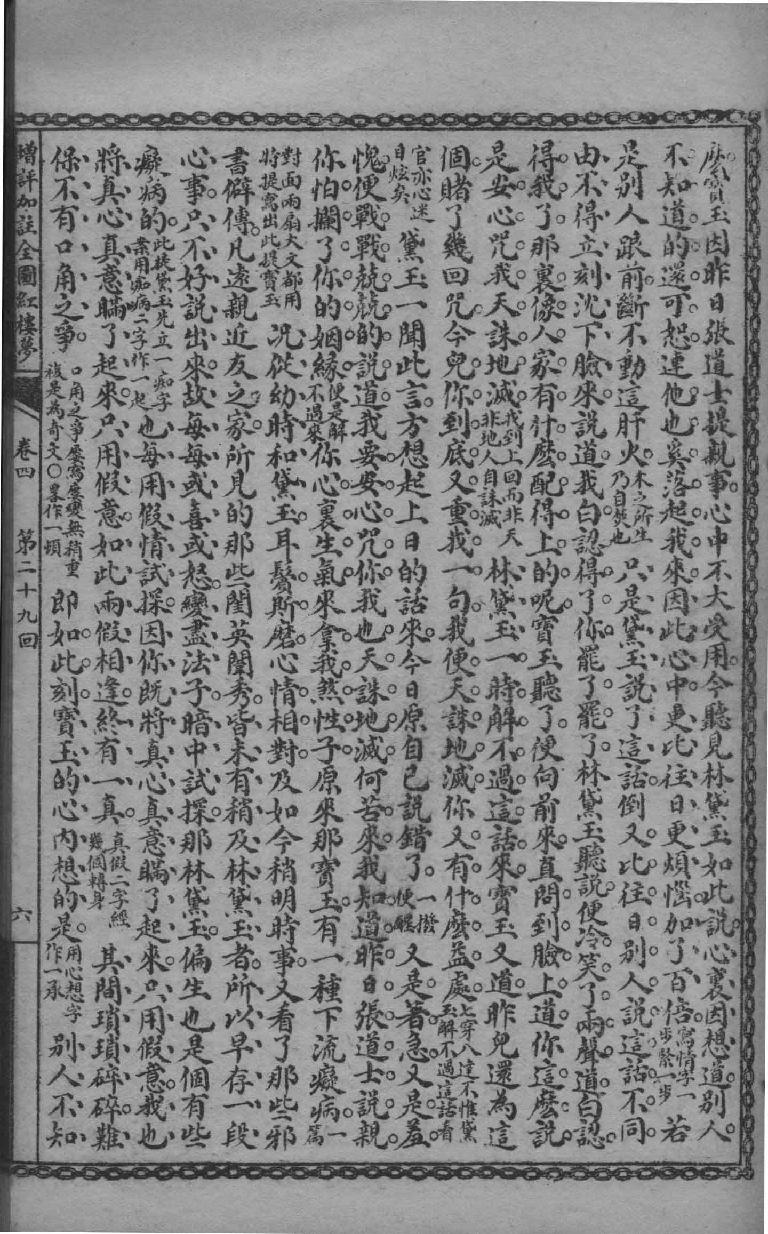 麽寶玉因昨日張道士提親事心中不大受用今聽見林黛玉如此説心裏因想道别人
不知道的還可恕連他也奚落起我來因此心中更比往日更煩惱加了百倍寫情字一步緊一步若
是别人跟前斷不動這肝火木之所生乃自焚也只是黛玉説了這話倒又比往日别人説這話不同
由不得立刻沈下臉來説道我白認得了你罷了罷了林黛玉聽説便冷笑了兩聲道白認
得我了那裏像人家有什麽配得上的呢寶玉聽了便向前來直問到臉上道你這麽説
是安心咒我天誅地滅我到上回而非天非地人自誅滅林黛玉一時解不過這話來寶玉又道昨兒還為這
個賭了幾回咒今兒你到底又重我一句我便天誅地滅你又有什麽益處七穿八達不惟黛玉解不過這話看
官亦心迷目炫矣黛玉一聞此言方想起上日的話來今日原自己説錯了一撥便醒又是著急又是羞
愧便戰戰兢兢的説道我要安心咒你我也天誅地滅何苦來我知道昨日張道士説親
你怕攔了你的姻緣便是解不過來你心裏生氣來拿我煞性子原來那寶玉有一種下流癡病一篇
對面兩扇大文都用特提寫出此提寶玉况從幼時和黛玉耳鬢斯磨心情相對及如今稍明時事又看了那些邪
書僻傳凡遠親近友之家所見的那些閨英闈秀皆未有稍及林黛玉者所以早存一段
心事只不好説出來故每每或喜或怒變盡法子暗中試探那林黛玉偏生也是個有些
癡病的此接黛玉先立一痴字業用痴病二字作一起也每用假情試探因你既將真心真意瞞了起來只用假意我也
將真心真意瞞了起來只用假意如此兩假相逢終有一真真假二字經幾個轉身其間瑣瑣碎碎難
保不有口角之爭口角之爭屢寫屢變無稍重複是為奇文〇畧作一頓即如此刻寶玉的心内想的是用心想字作一承别人不知
增評加註全圖紅樓夢
卷四
第二十九回
六